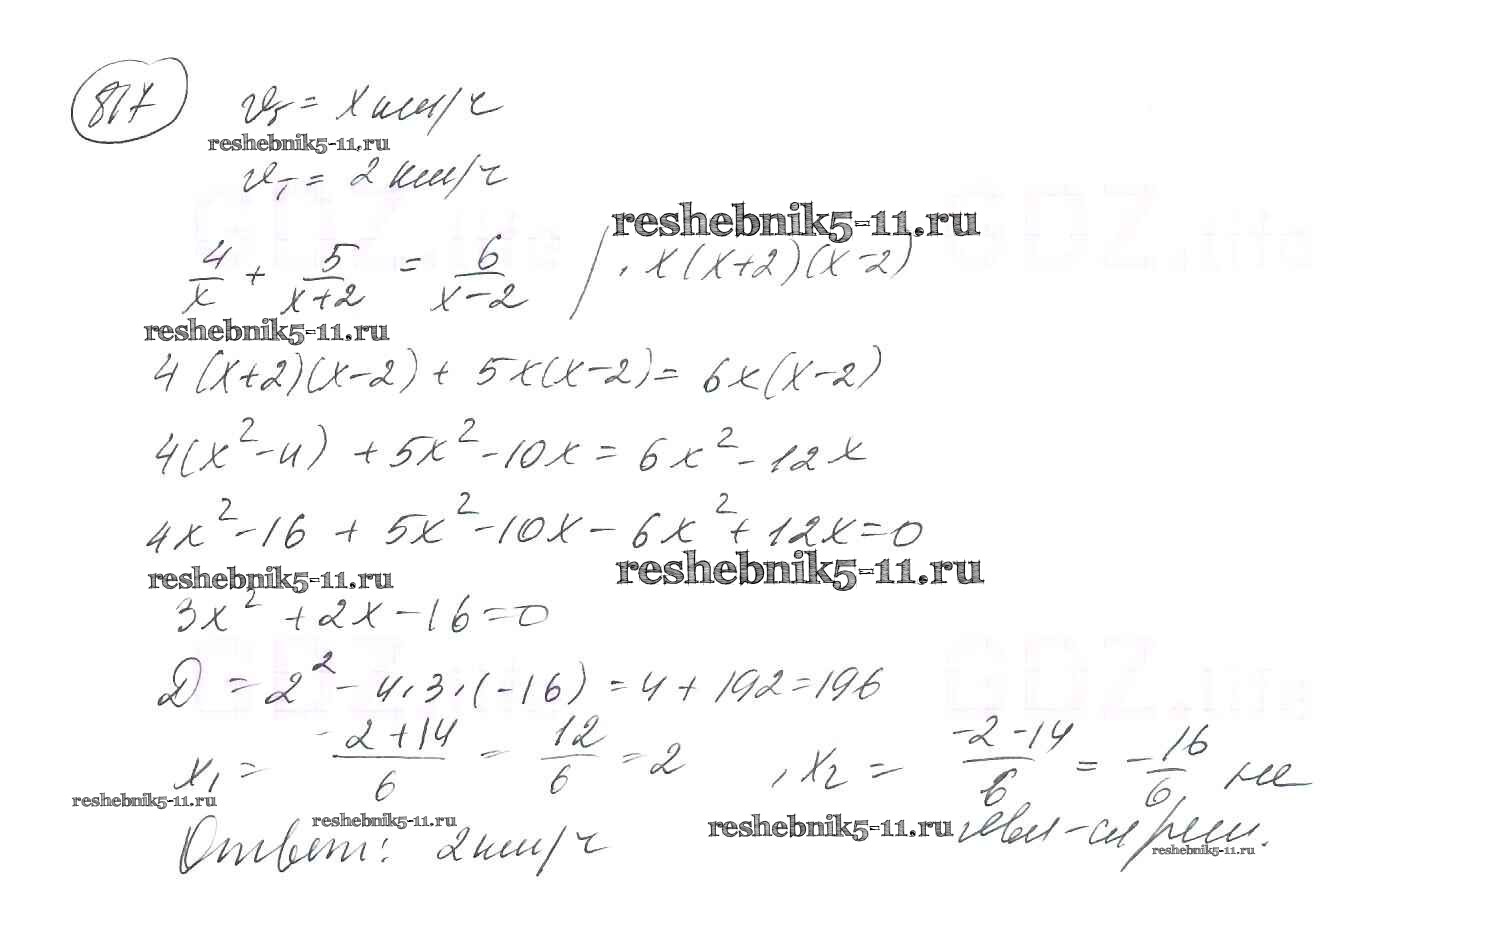 817
v_б = x км/ч
reshebnik5-11.ru
v_т = 2 км/ч
reshebnik5-11.ru
4/x + 5/(x+2) = 6/(x-2) | · x(x+2)(x-2)
reshebnik5-11.ru
4(x+2)(x-2) + 5x(x-2) = 6x(x-2)
4(x²-4) + 5x²-10x = 6x²-12x
4x²-16 + 5x²-10x-6x²+12x=0
reshebnik5-11.ru reshebnik5-11.ru
3x²+2x-16=0
D = 2²-4·3·(-16) = 4+192=196
x₁ = (-2+14)/6 = 12/6 = 2 , x₂ = (-2-14)/6 = -16/6 не
reshebnik5-11.ru
явл-ся реш.
reshebnik5-11.ru reshebnik5-11.ru reshebnik5-11.ru
Ответ: 2 км/ч
GDZ.life GDZ.life
GDZ.life GDZ.life